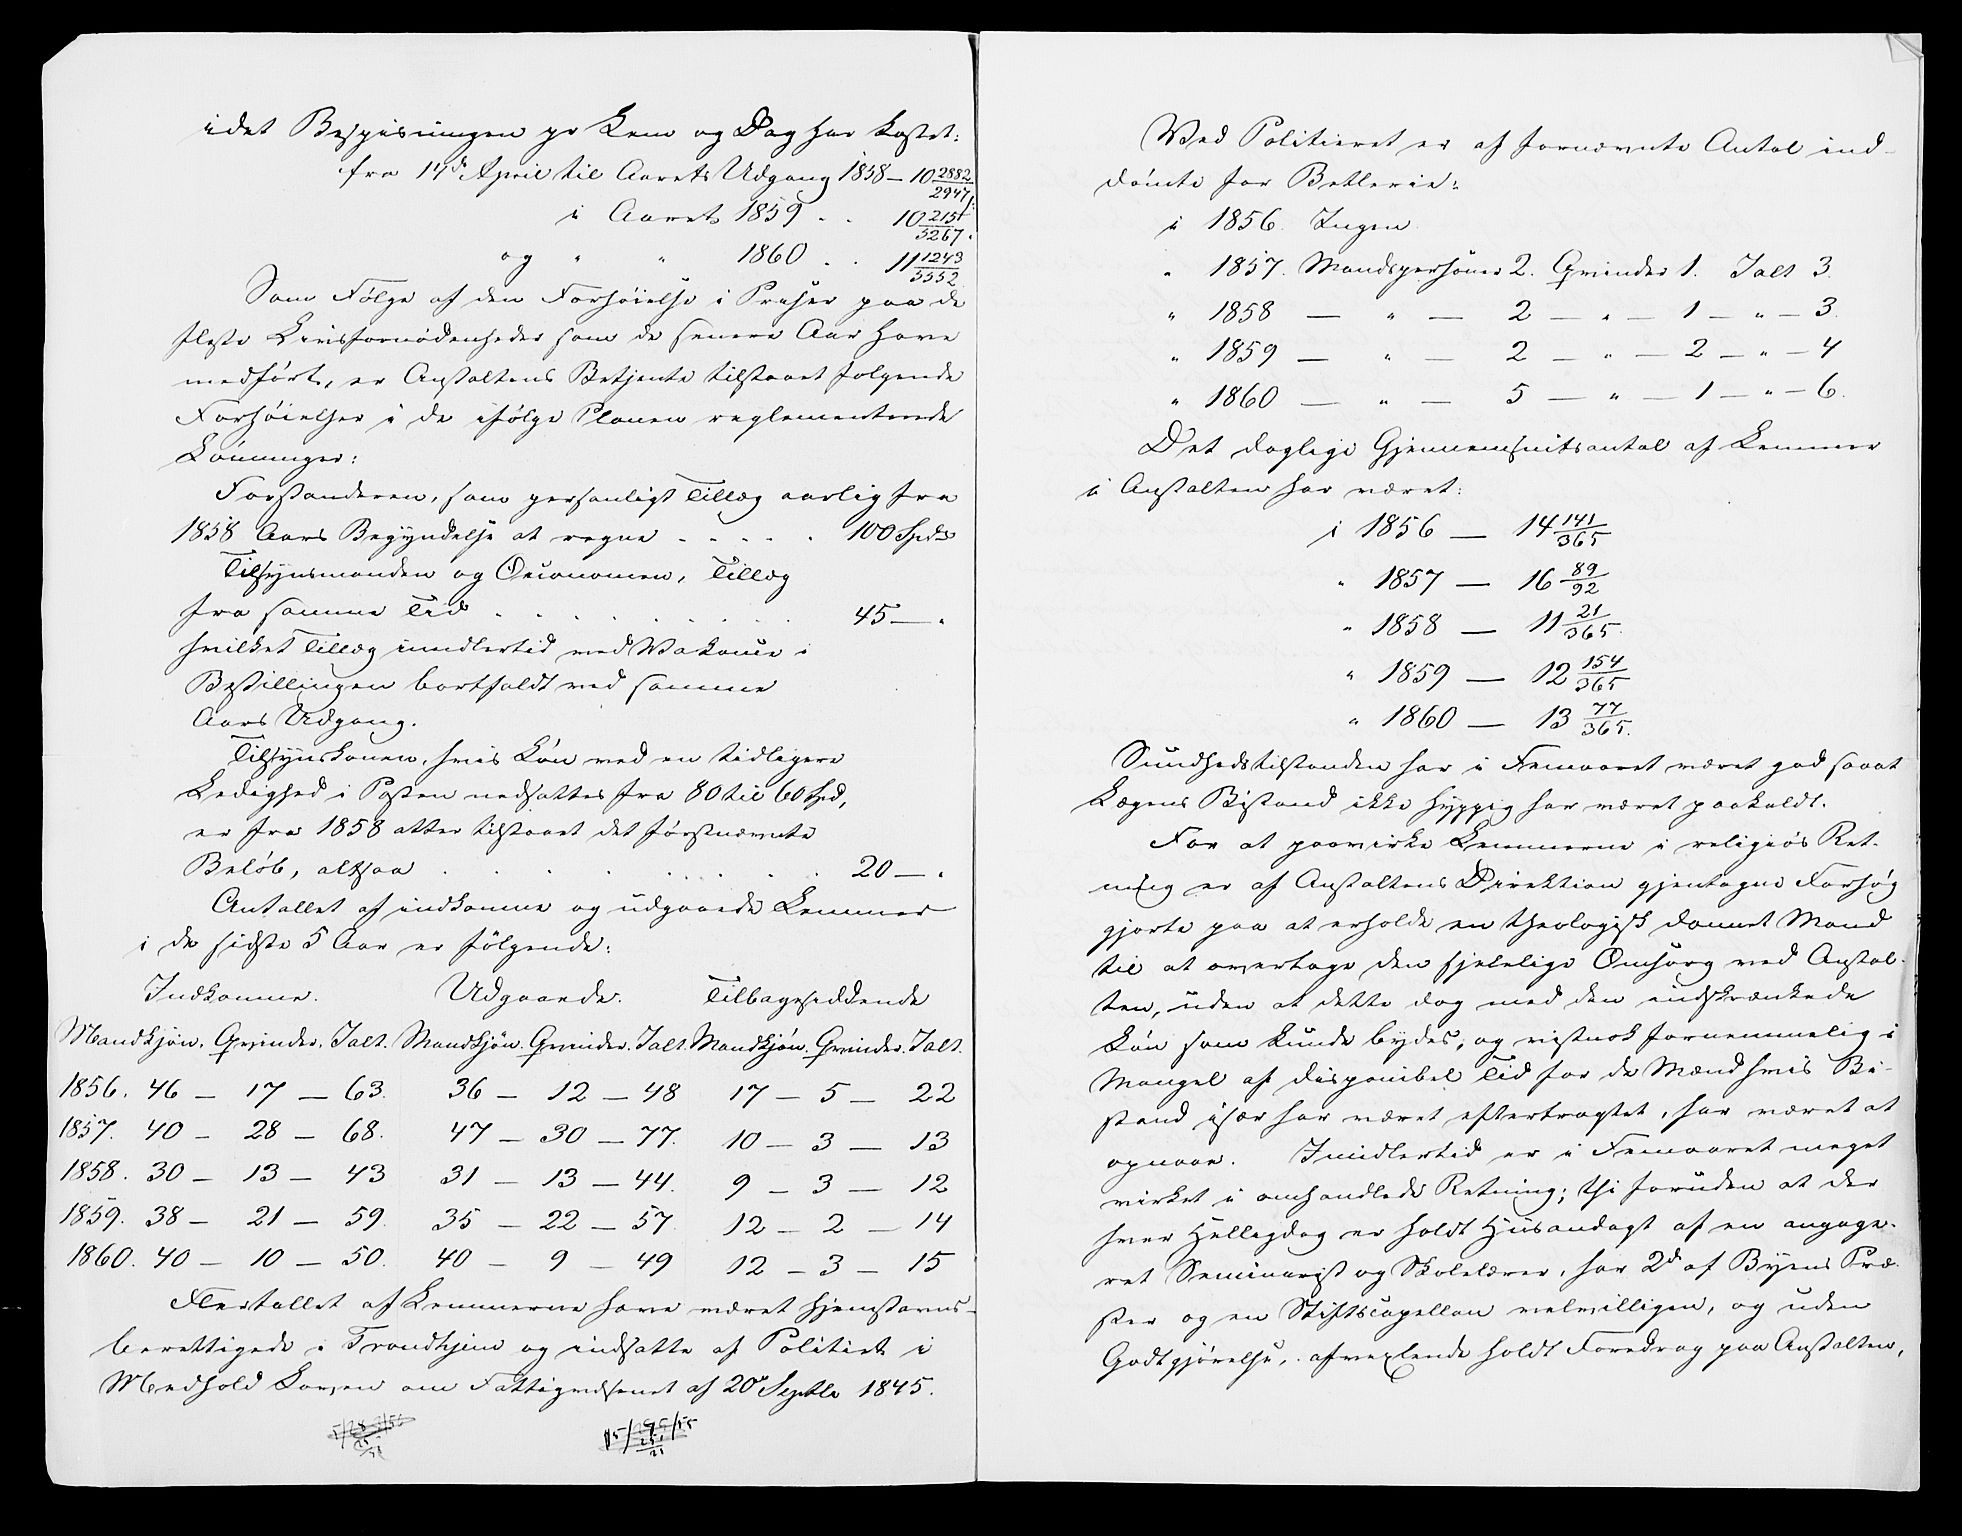 idet Bespisningen pr Lem og Dag har kostet:
fra 14de April til Aarets Udgang 1858 — 10 2882/2947 ß
i Aaret 1859 . . 10 2151/5267 .
og " " 1860 . . 11 1243/5552
Som Følge af den Forhøielse i Priser paa de
fleste Livsfornødenheder som de senere Aar have
medført, er Anstaltens Betjente tilstaaet følgende
Forhøielser i de ifølge Planen reglementerede
Lønninger:
Forstanderen, som personligt Tillæg aarlig fra
1858 Aars Begyndelse at regne . . . . . 100 Spdlr
Tilsynsmanden og Oeconomen, Tillæg
fra samme Tid . . . . . . . . 45 — "
hvilket Tillæg imidlertid ved Vakance i
Bestillingen bortfaldt ved samme
Aars Udgang.
Tilsynskonen, hvis Løn ved en tidligere
Ledighed i Posten nedsattes fra 80 til 60 Spd,
er fra 1858 atter tilstaaet det førstnævnte
Beløb, altsaa . . . . . . . . 20 — "
Antallet af indkomne og udgaaede Lemmer
i de sidste 5 Aar er følgende:
Indkomne. Udgaaede. Tilbagesiddende
Mandkjøn. Qvinder. Ialt. Mandkjøn. Qvinder. Ialt. Mandkjøn. Qvinder. Ialt.
1856. 46 — 17 — 63. 36 — 12 — 48 17 — 5 — 22
1857. 40 — 28 — 68. 47 — 30 — 77. 10 — 3 — 13
1858. 30 — 13 — 43 31 — 13 — 44. 9 — 3 — 12
1859. 38 — 21 — 59. 35 — 22 — 57. 12 — 2 — 14
1860. 40 — 10 — 50. 40 — 9 — 49 12 — 3 — 15
Flertallet af Lemmerne have været hjemstavns-
berettigede i Trondhjem og indsatte af Politiet i
Medhold Loven om Fattigvæsenet af 20de Septbr 1845.
Ved Politieret er af fornævnte Antal ind-
dømte for Betlerie:
i 1856. Ingen.
" 1857. Mandspersoner 2. Qvinder 1. Ialt 3.
" 1858 — " — 2 — " — 1 — " — 3.
" 1859 — " — 2 — " — 2 — " — 4
" 1860 — " — 5 — " — 1 — " — 6.
Det daglige Gjennemsnitsantal af Lemmer
i Anstalten har været:
i 1856 — 14 141/365
" 1857 — 16 89/92
" 1858 — 11 21/365.
" 1859 — 12 154/365
" 1860 — 13 77/365.
Sundhedstilstanden har i Femaaret været god saaat
Lægens Bistand ikke hyppig har været paakaldt.
For at paavirke Lemmerne i religiøs Ret-
ning er af Anstaltens Direktion gjentagne Forsøg
gjorte paa at erholde en theologisk dannet Mand
til at overtage den sjelelige Omsorg ved Anstal-
ten, uden at dette dog med den indskrænkede
Løn som kunde bydes, og vistnok fornemmelig i
Mangel af disponibel Tid for de Mænd hvis Bi-
stand især har været eftertragtet, har været at
opnaae. Imidlertid er i Femaaret meget
virket i omhandlede Retning; thi foruden at der
hver Helligdag er holdt Husandagt af en engage-
ret Seminarist og Skolelærer, har 2de af Byens Præ-
ster og en Stiftscapellan velvilligen, og uden
Godtgjørelse, afvexlende holdt Foredrag paa Anstalten,